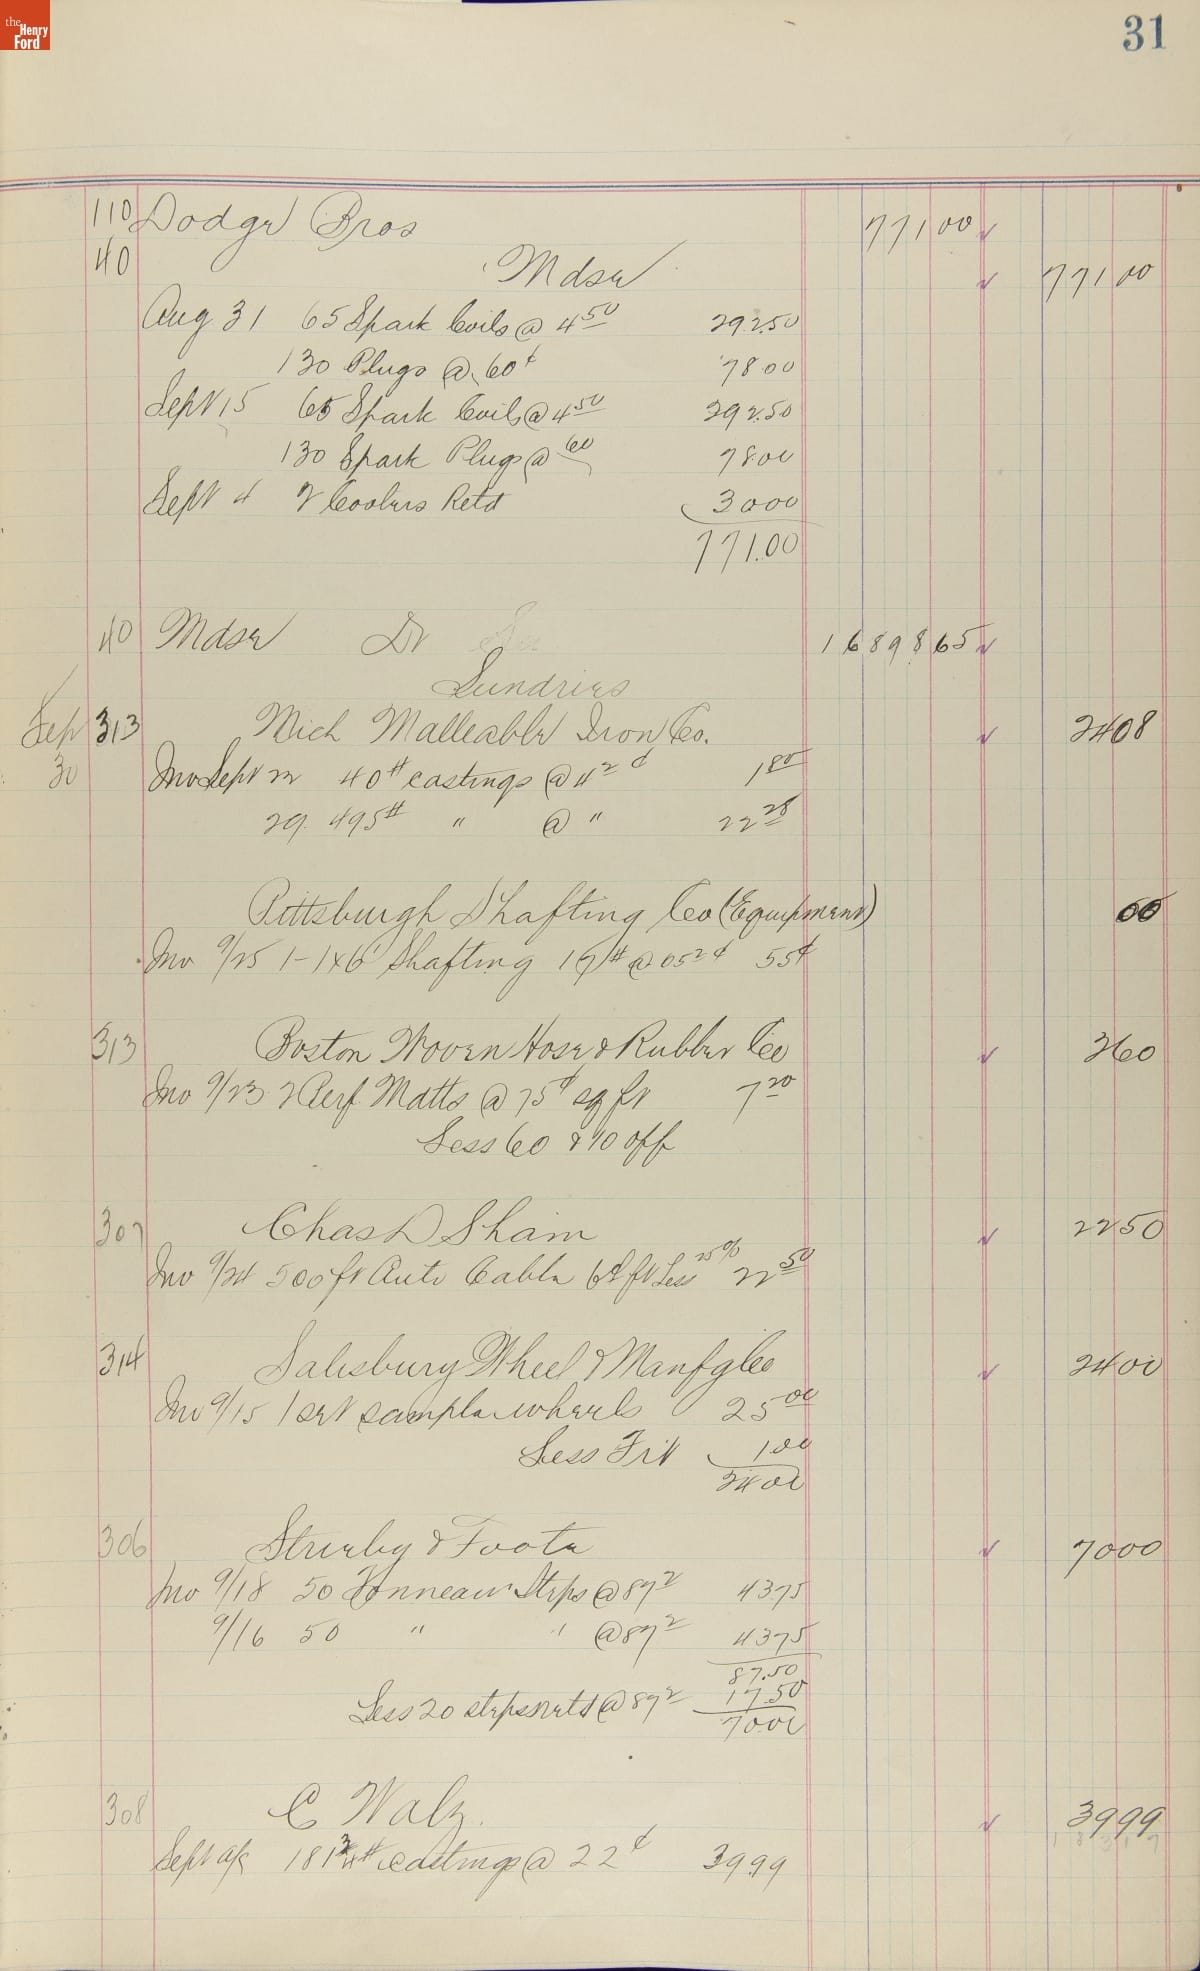 the Henry Ford
31
110 Dodge Bros 771 00
40 Mdse 771 00
Aug 31 65 Spark Coils @ 4 50 292.50
130 Plugs @ 60¢ 78.00
Sept 15 65 Spark Coils @ 4 50 292.50
130 Spark Plugs @ 60 78.00
Sept 4 2 Coolers Retd 30 00
771.00
40 Mdse Dr 16898 65
Sundries
Sep 313 Mich Malleable Iron Co. 24 08
30 Inv Sept 22 40# castings @ 4 2 ¢ 1 80
29 495# " @ " 22 28
Pittsburgh Shafting Co (Equipment) 00
Inv 9/25 1 - 1x6 Shafting @ 05 2 ¢ 55¢
313 Boston Woven Hose & Rubber Co 2 60
Inv 9/23 2 Perf Matts @ 75¢ sq ft 7 20
Less 60 & 10 off
307 Chas D Shain 22 50
Inv 9/24 500 ft Auto Cable 6¢ ft Less 25% 22 50
314 Salisbury Wheel & Manfg Co 24 00
Inv 9/15 1 set sample wheels 25 00
Less Frt 1 00
24 00
306 Strieby & Foote 70 00
Inv 9/18 50 Tonneau Steps @ 87 2 43 75
9/16 50 " " @ 87 2 43 75
87.50
Less 20 steps retd @ 87 2 17.50
70.00
308 C Walz. 39 99
Sept a/c 181 3/4# castings @ 22¢ 39 99